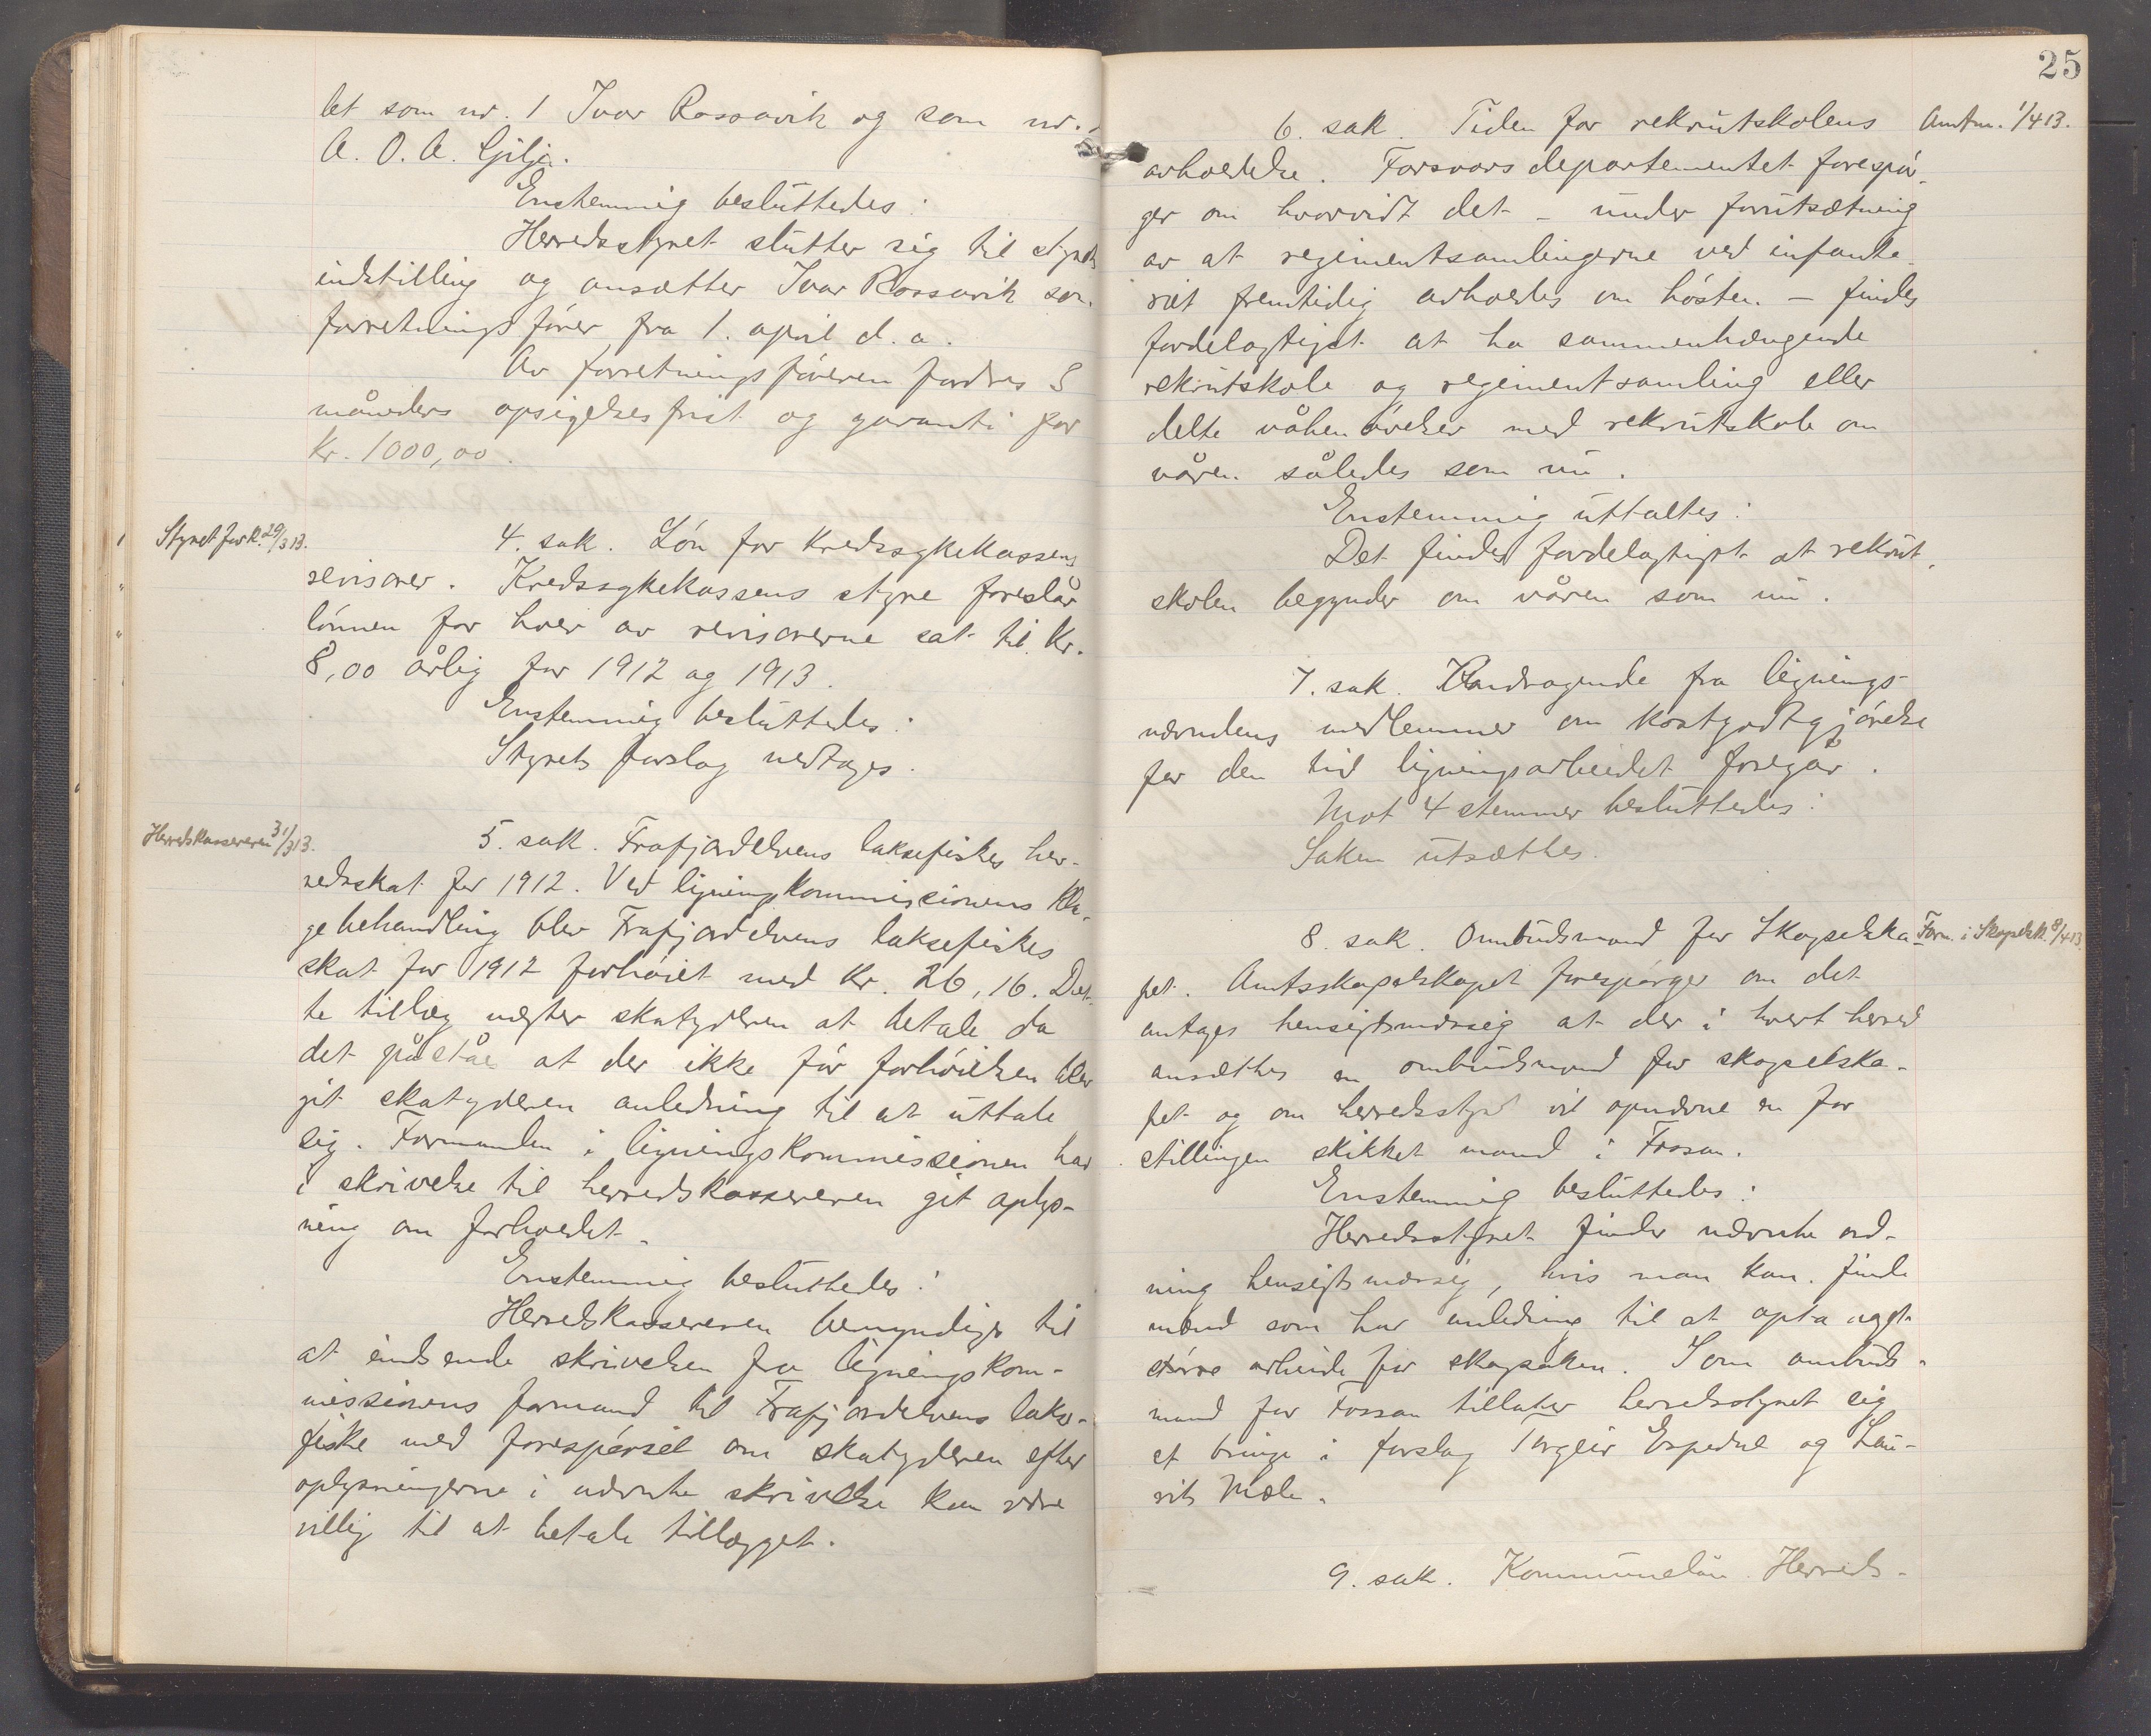 let som nr. 1 Ivar Rossavik og som nr.
A. O. A. Gilje.
Enstemmig besluttedes:
Herredsstyret slutter sig til styrets
indstilling og ansætter Ivar Rossavik som
forretningsfører fra 1. april d. a.
Av forretningsføreren fordres 3
måneders opsigelsesfrist og garanti for
kr. 1000,00.
Styret for k. 29/3 13.
4. sak. Løn for kredssykekassens
revisorer. Kredssykekassens styre foreslår
lønnen for hver av revisorerne sat til kr.
8,00 årlig for 1912 og 1913.
Enstemmig besluttedes:
Styrets forslag vedtages.
Herredskassereren 31/3 13.
5. sak. Frafjordelvens laksefiskes her-
redsskat for 1912. Ved ligningskommissionens kla-
gebehandling blev Frafjordelvens laksefiskes
skat for 1912 forhøiet med kr. 26,16. Det-
te tillæg negter skatyderen at betale da
det påstås at der ikke før forhøielsen blev
git skatyderen anledning til at uttale
sig. Formanden i ligningskommissionen har
i skrivelse til herredskassereren git oplys-
ning om forholdet.
Enstemmig besluttedes:
Herredskassereren bemyndiges til
at indsende skrivelsen fra ligningskom-
missionens formand til Frafjordelvens lakse-
fiske med forespørsel om skatyderen efter
oplysningerne i nævnte skrivelse kan være
villig til at betale tillægget.
25
6. sak. Tiden for rekrutskolens
Amtm. 1/4 13.
avholdelse. Forsvarsdepartementet forespør-
ger om hvorvidt det - under forutsætning
av at regimentsamlingerne ved infante-
riet fremtidig avholdes om høsten - findes
fordelagtigst at ha sammenhængende
rekrutskole og regimentsamling eller
delte våbenøvelser med rekrutskole om
våren således som nu.
Enstemmig uttaltes:
Det findes fordelagtigst at rekrut-
skolen begynder om våren som nu.
7. sak. Andragende fra lignings-
nævndens medlemmer om kostgodtgjørelse
for den tid ligningsarbeidet foregår.
Mot 4 stemmer besluttedes:
Saken utsættes.
8. sak. Ombudsmand for Skogselska-
Form. i Skogselsk. 8/4 13.
pet. Amtsskogselskapet forespørger om det
antages hensigtsmæssig at der i hvert herred
ansættes en ombudsmand for skogselska-
pet og om herredsstyret vil opnævne en for
stillingen skikket mand i Fossan.
Enstemmig besluttedes:
Herredsstyret finder nævnte ord-
ning hensigtsmæssig, hvis man kan finde
mænd som har anledning til at opta noget
større arbeide for skogsaken. Som ombuds-
mand for Fossan tillater herredsstyret sig
at bringe i forslag Torgeir Espedal og Lau-
rits Mæle.
9. sak. Kommunelån. Herreds-